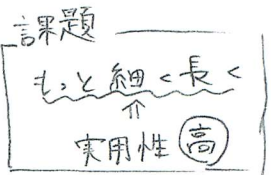 課題
もっと細く長く
⇑
実用性 高